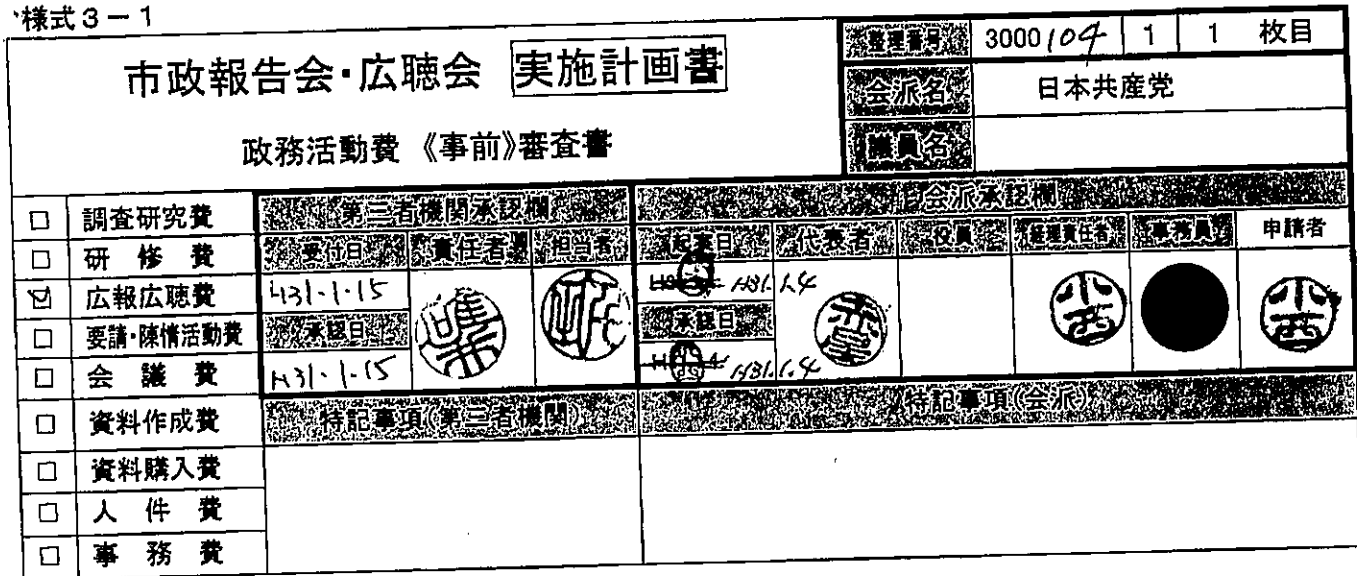 様式3-1
市政報告会・広聴会 実施計画書
政務活動費《事前》審査書
整理番号 3000104 1 1 枚目
会派名 日本共産党
議員名
□ 調査研究費
□ 研修費
☑ 広報広聴費
□ 要請・陳情活動費
□ 会議費
□ 資料作成費
□ 資料購入費
□ 人件費
□ 事務費
第三者機関承認欄
受付日 責任者 担当者
H31.1.15
承認日
H31.1.15
会派承認欄
起案日 代表者 役員 経理責任者 事務員 申請者
H31.1.4
小西 小西
承認日
H31.1.4
特記事項(第三者機関)
特記事項(会派)